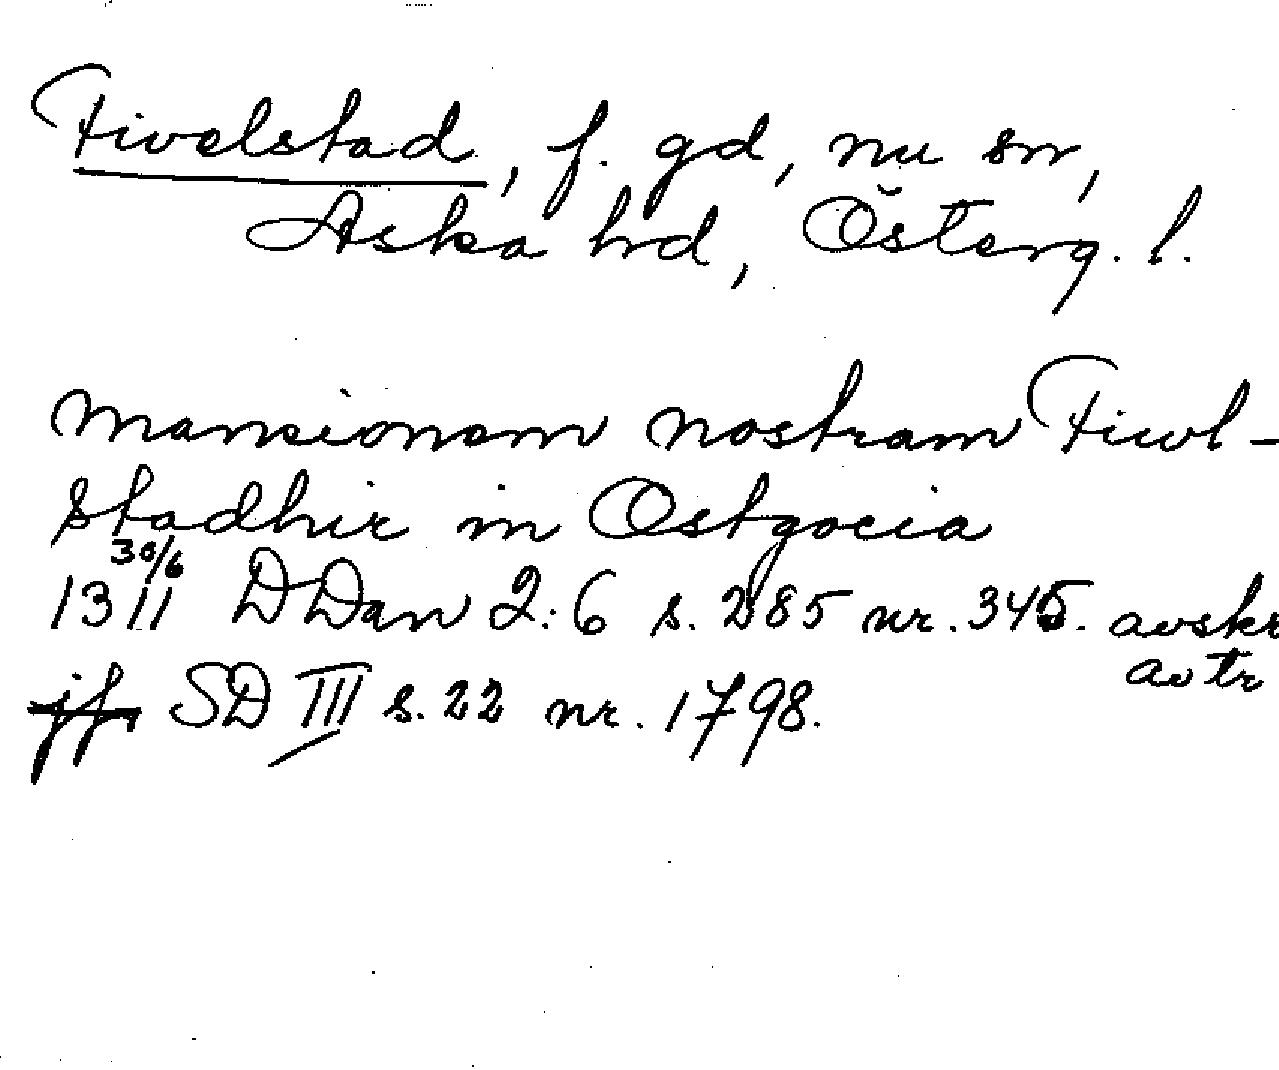 Fivelstad, f. gd, nu sn,
Aska hd, Österg. l.
mansionem nostram Fiwl-
stadhir in Ostgocia
30/6
1311 DDan 2:6 s. 285 nr. 345. avskr
av tr
jfr SD III s. 22 nr. 1798.